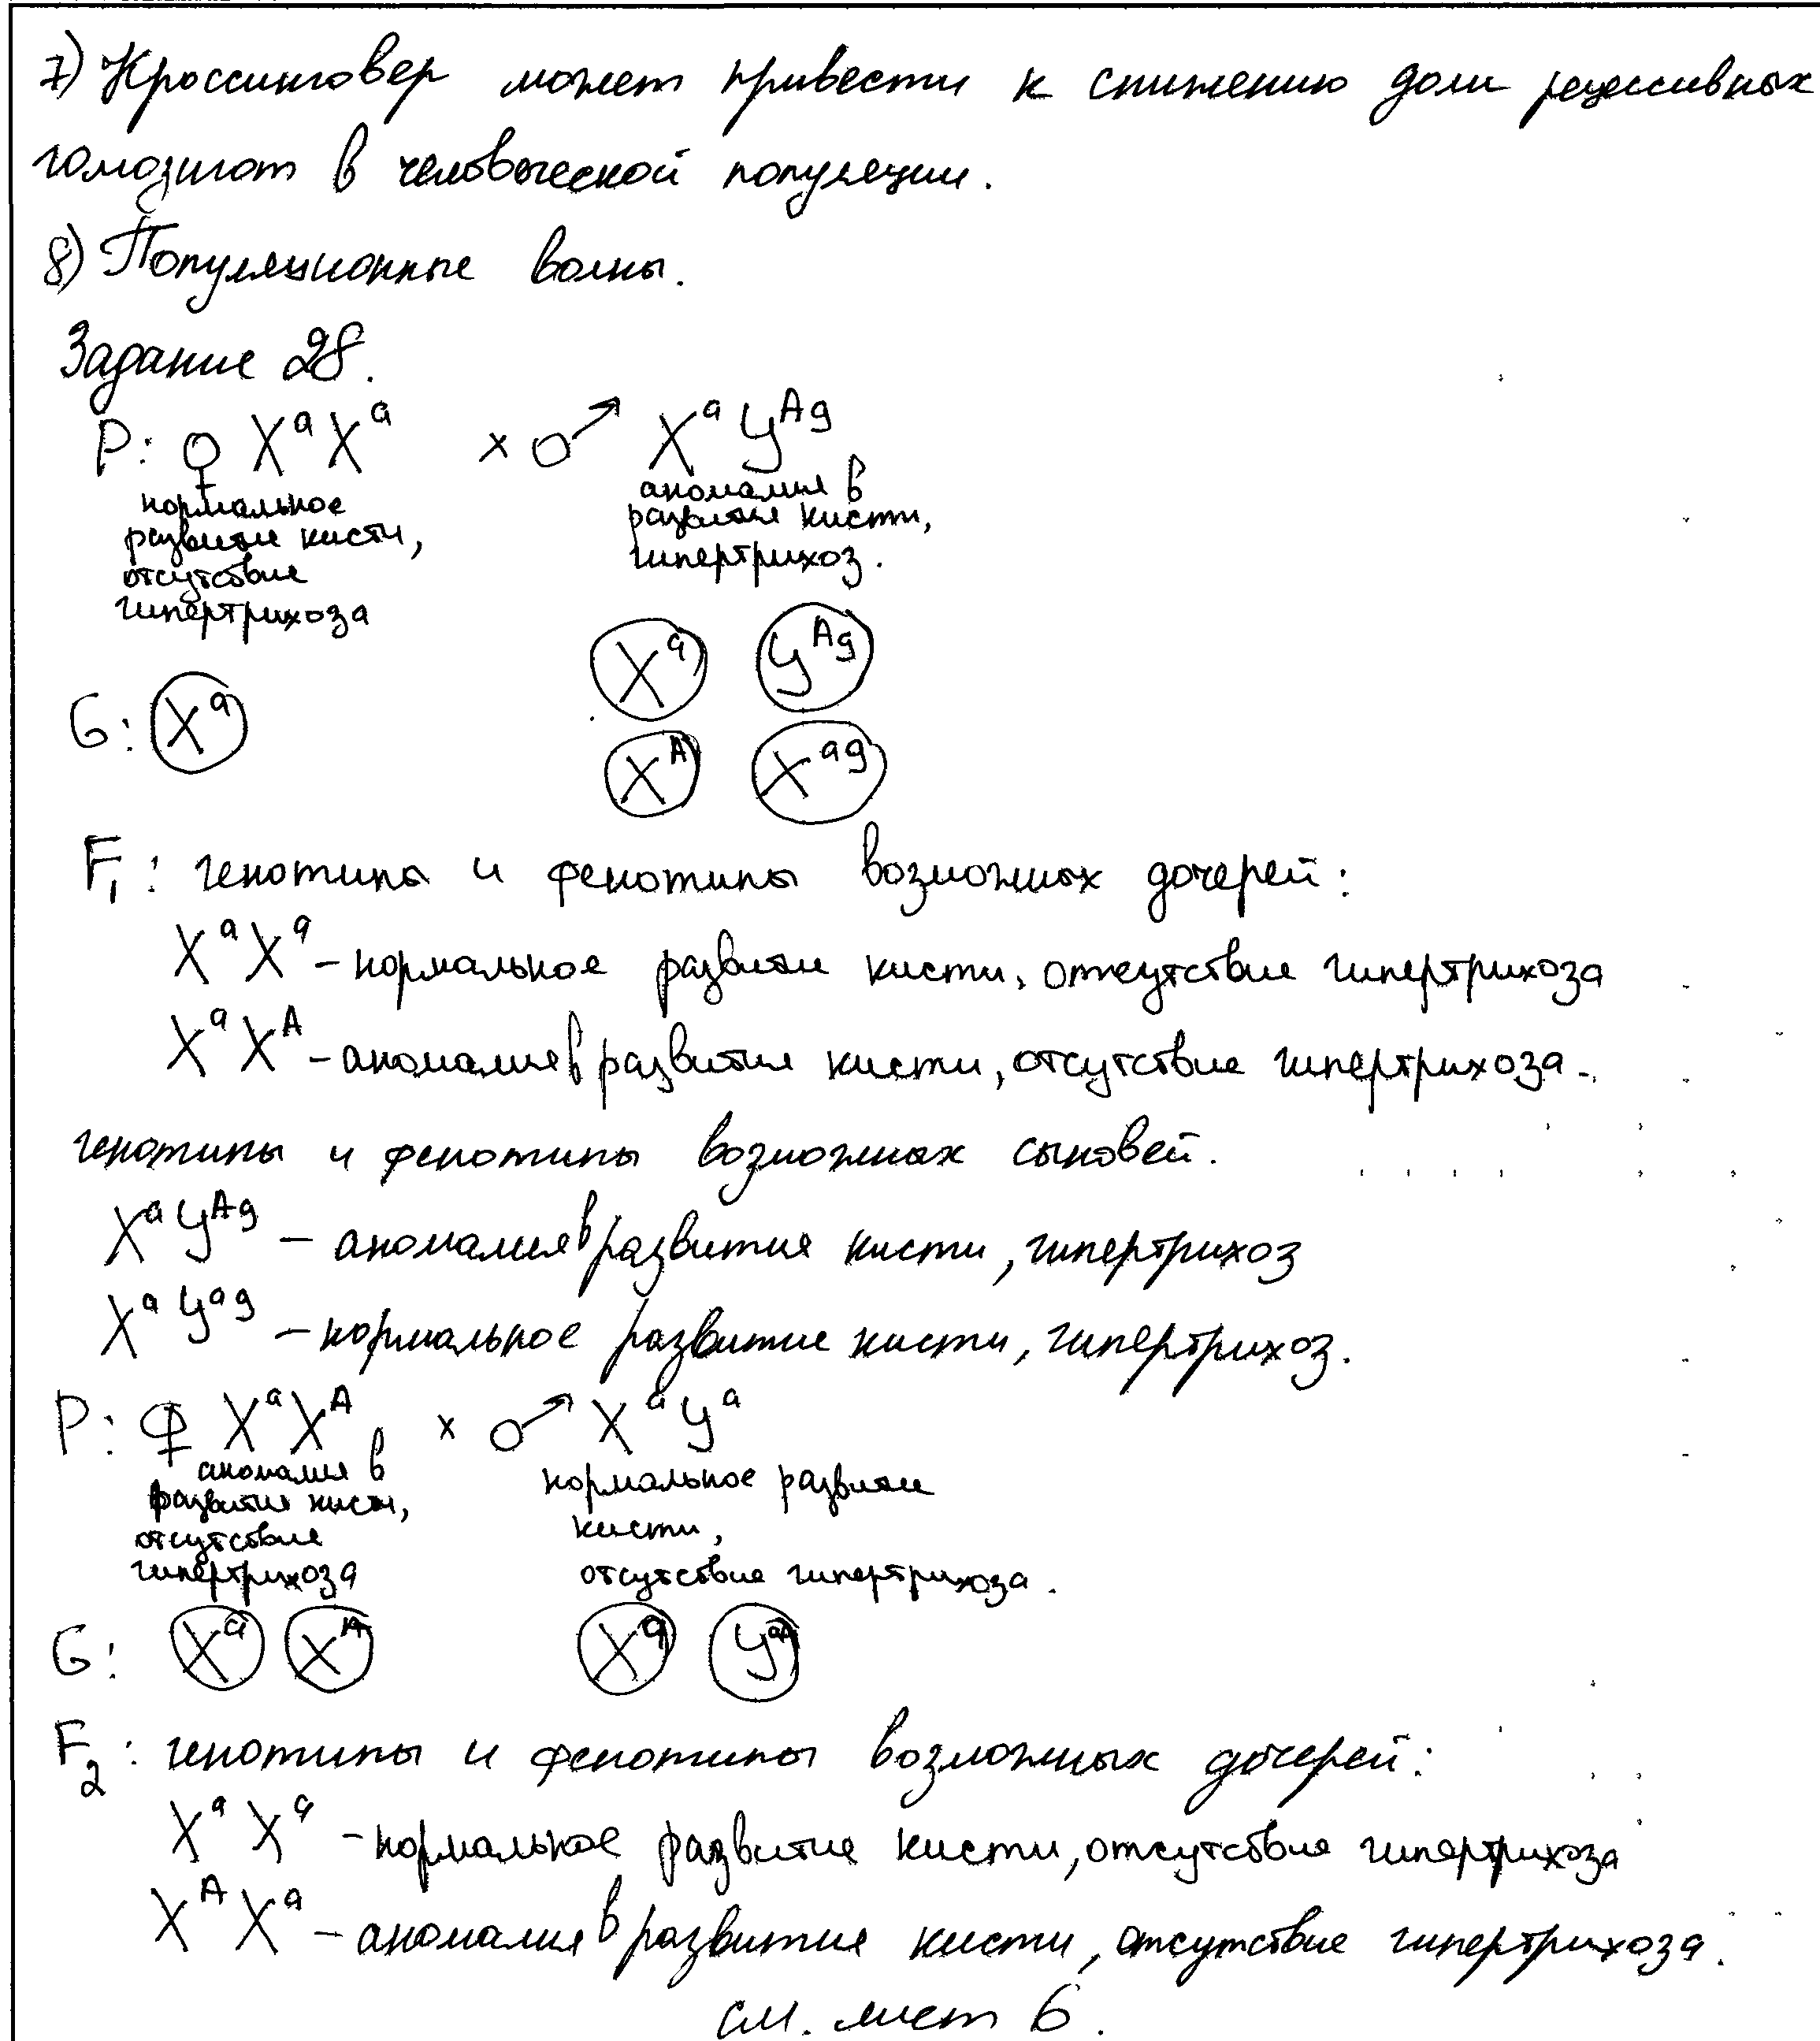 7) Кроссинговер может привести к снижению доли рецессивных
гомозигот в человеческой популяции.
8) Популяционные волны.
Задание 28.
P: ♀ XᵃXᵃ × ♂ XᵃYᴬᵍ
нормальное развитие кисти, отсутствие гипертрихоза
аномалия в развитии кисти, гипертрихоз.
G: Xᵃ Xᵃ Yᴬᵍ
Xᴬ Xᵃᵍ
F₁: генотипы и фенотипы возможных дочерей:
XᵃXᵃ – нормальное развитие кисти, отсутствие гипертрихоза
XᵃXᴬ – аномалия в развития кисти, отсутствие гипертрихоза.
генотипы и фенотипы возможных сыновей.
XᵃYᴬᵍ – аномалия в развития кисти, гипертрихоз
XᵃYᵃᵍ – нормальное развитие кисти, гипертрихоз.
P: ♀ XᵃXᴬ × ♂ XᵃYᵃ
аномалия в развития кисти, отсутствие гипертрихоза
нормальное развитие кисти, отсутствие гипертрихоза.
G: Xᵃ Xᴬ Xᵃ Yᵃ
F₂: генотипы и фенотипы возможных дочерей:
XᵃXᵃ – нормальное развитие кисти, отсутствие гипертрихоза
XᴬXᵃ – аномалия в развития кисти, отсутствие гипертрихоза.
см. лист 6.